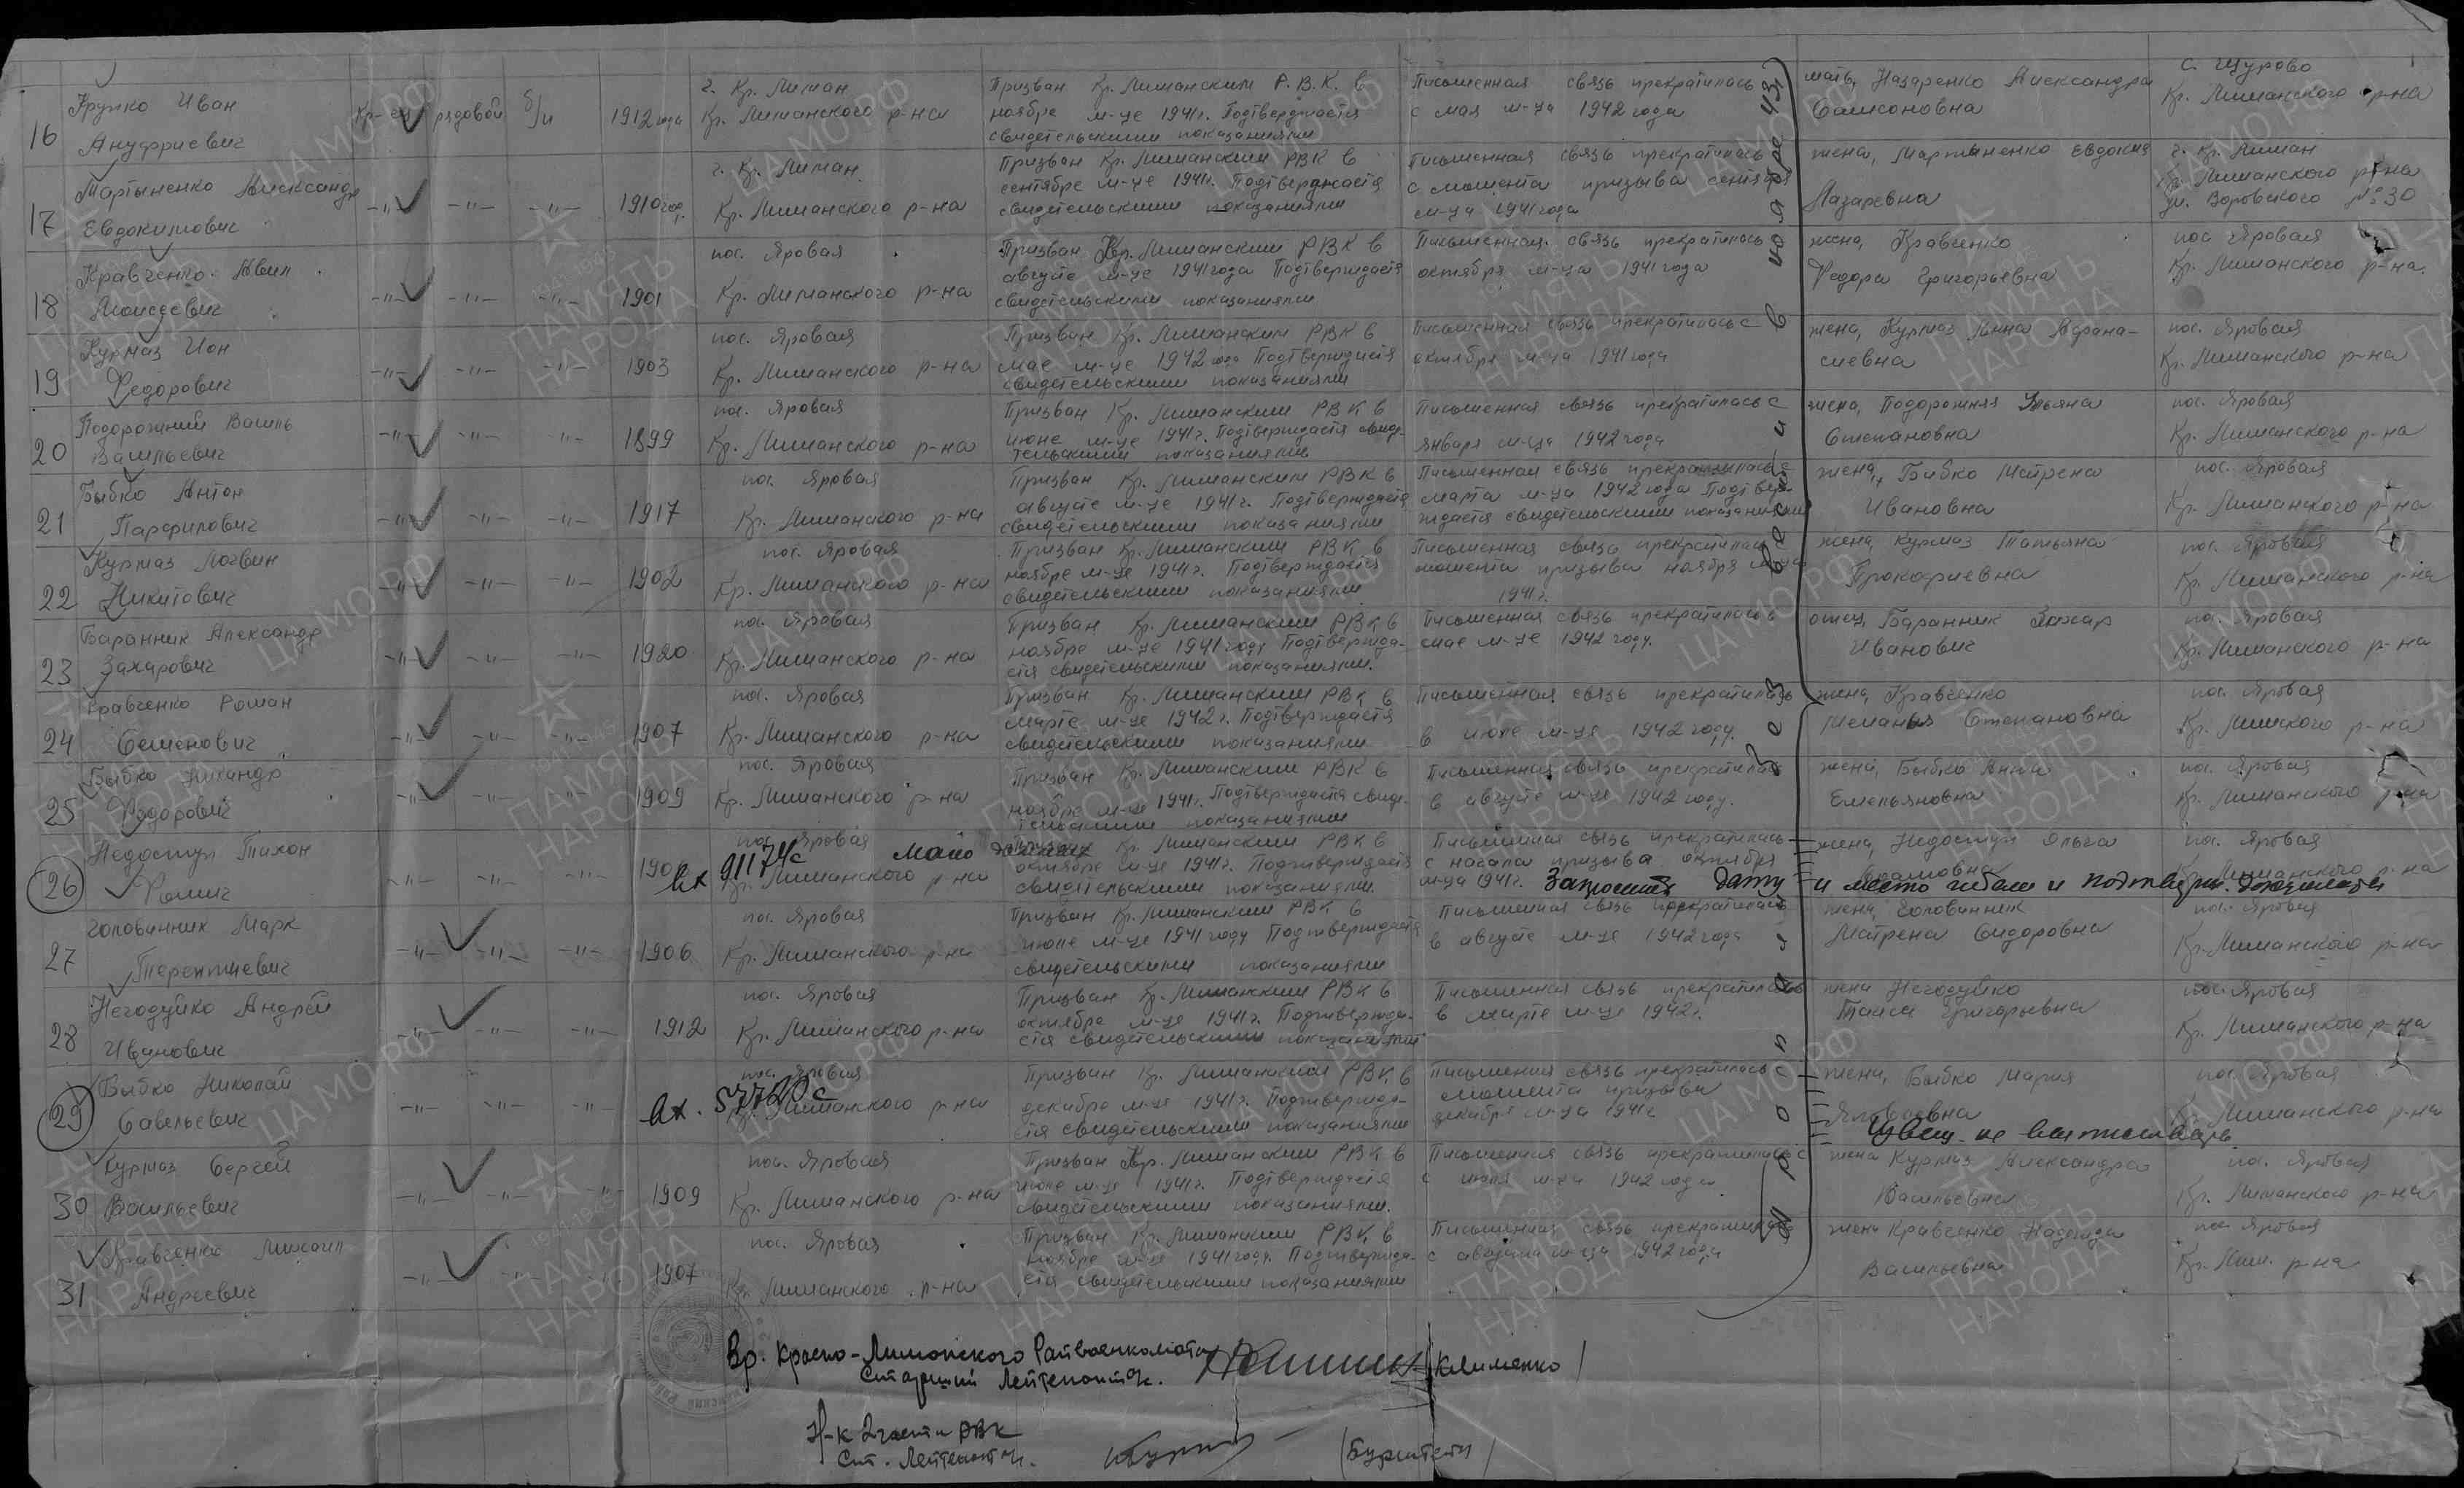 16
Крупко Иван
Ануфриевич
Кр-ец рядовой б/п 1912 года
г. Кр. Лиман
Кр. Лиманского р-на
Призван Кр. Лиманским Р.В.К. в
ноябре м-це 1941г. Подтверждается
свидетельскими показаниями
Письменная связь прекратилась
с мая м-ца 1942 года
мать, Назаренко Александра
Самсоновна
с. Щурово
Кр. Лиманского р-на
17
Мартыненко Александр
Евдокимович
-"- -"- -"- 1910 год.
г. Кр. Лиман
Кр. Лиманского р-на
Призван Кр. Лиманским РВК в
сентябре м-це 1941г. Подтверждается
свидетельскими показаниями
Письменная связь прекратилась
с момента призыва сентября
м-ца 1941 года
жена, Мартыненко Евдокия
Лазаревна
г. Кр. Лиман
Кр. Лиманского р-на
ул. Воровского №30
18
Кравченко
Моисеевич
-"- -"- -"- 1901
пос. Яровая
Кр. Лиманского р-на
Призван Кр. Лиманским РВК в
августе м-це 1941 года Подтверждается
свидетельскими показаниями
Письменная связь прекратилась
октября м-ца 1941 года
жена, Кравченко
Федора Григорьевна
пос Яровая
Кр. Лиманского р-на.
19
Курмаз Ион
Федорович
-"- -"- -"- 1903
пос. Яровая
Кр. Лиманского р-на
Призван Кр. Лиманским РВК в
мае м-це 1942 года Подтверждается
свидетельскими показаниями
Письменная связь прекратилась с
октября м-ца 1941 года
жена, Курмаз Анна Афана-
сиевна
пос. Яровая
Кр. Лиманского р-на
20
Подорожний Василь
Васильевич
-"- -"- -"- 1899
пос. Яровая
Кр. Лиманского р-на
Призван Кр. Лиманским РВК в
июне м-це 1941г. Подтверждается свиде-
тельскими показаниями
Письменная связь прекратилась с
января м-ца 1942 года
жена, Подорожняя Ульяна
Степановна
пос. Яровая
Кр. Лиманского р-на
21
Быбко Антон
Парфилович
-"- -"- -"- 1917
пос. Яровая
Кр. Лиманского р-на
Призван Кр. Лиманским РВК в
августе м-це 1941г. Подтверждается
свидетельскими показаниями
Письменная связь прекратилась с
марта м-ца 1942 года Подтвер-
ждается свидетельскими показаниями
жена, Бибко Матрена
Ивановна
пос. Яровая
Кр. Лиманского р-на
22
Курмаз Логвин
Никитович
-"- -"- -"- 1902
пос. Яровая
Кр. Лиманского р-на
Призван Кр. Лиманским РВК в
ноябре м-це 1941г. Подтверждается
свидетельскими показаниями
Письменная связь прекратилась с
момента призыва ноября м-ца
1941г.
жена, Курмаз Татьяна
Прокофиевна
пос. Яровая
Кр. Лиманского р-на
23
Баранник Александр
Захарович
-"- -"- -"- 1920
пос. Яровая
Кр. Лиманского р-на
Призван Кр. Лиманским РВК в
ноябре м-це 1941 году Подтвержда-
ется свидетельскими показаниями.
Письменная связь прекратилась в
мае м-це 1942 году.
отец, Баранник Захар
Иванович
пос. Яровая
Кр. Лиманского р-на
24
Кравченко Роман
Семенович
-"- -"- -"- 1907
пос. Яровая
Кр. Лиманского р-на
Призван Кр. Лиманским РВК в
марте м-це 1942г. Подтверждается
свидетельскими показаниями
Письменная связь прекратилась
в июне м-це 1942 году.
жена, Кравченко
Мелания Степановна
пос. Яровая
Кр. Лимского р-на
25
Быбко Никандр
Федорович
-"- -"- -"- 1909
пос. Яровая
Кр. Лиманского р-на
Призван Кр. Лиманским РВК в
ноябре м-це 1941г. Подтверждается свиде-
тельскими показаниями
Письменная связь прекратилась
в августе м-це 1942 году.
жена, Быбко Анна
Емельяновна
пос. Яровая
Кр. Лиманского р-на
26
Недоступ Тихон
Фомич
-"- -"- -"- 1906
пос. Яровая
Кр. Лиманского р-на
вх 91174с мало данных
Призван Кр. Лиманским РВК в
октябре м-це 1941г. Подтверждается
свидетельскими показаниями.
Письменная связь прекратилась
с начала призыва октября
м-ца 1941г. Запросить дату и место гибели и подтверж.
жена, Недоступ Ольга
пос. Яровая
Кр. Лиманского р-на
27
Головинник Марк
Терентиевич
-"- -"- -"- 1906
пос. Яровая
Кр. Лиманского р-на
Призван Кр. Лиманским РВК в
июне м-це 1941 году Подтверждается
свидетельскими показаниями
Письменная связь прекратилась
в августе м-це 1942 года
жена, Головинник
Матрена Сидоровна
пос. Яровая
Кр. Лиманского р-на
28
Негодуйко Андрей
Иванович
-"- -"- -"- 1912
пос. Яровая
Кр. Лиманского р-на
Призван Кр. Лиманским РВК в
октябре м-це 1941г. Подтвержда-
ется свидетельскими показаниями
Письменная связь прекратилась
в марте м-це 1942г.
жена Негодуйко
Таиса Григорьевна
пос. Яровая
Кр. Лиманского р-на
29
Быбко Николай
Савельевич
-"- -"- -"-
вх. 57720с
пос. Яровая
Кр. Лиманского р-на
Призван Кр. Лиманским РВК в
декабре м-це 1941г. Подтвержда-
ется свидетельскими показаниями
Письменная связь прекратилась с
момента призыва
декабря м-ца 1941г
жена, Быбко Мария
Яковлевна
Извещ. не высылать
пос. Яровая
Кр. Лиманского р-на
30
Курмаз Сергей
Васильевич
-"- -"- -"- 1909
пос. Яровая
Кр. Лиманского р-на
Призван Кр. Лиманским РВК в
июне м-це 1941г. Подтверждается
свидетельскими показаниями.
Письменная связь прекратилась с
с июля м-ца 1942 года
жена Курмаз Александра
Васильевна
пос. Яровая
Кр. Лиманского р-на
31
Кравченко Михаил
Андреевич
-"- -"- -"- 1907
пос. Яровая
Кр. Лиманского р-на
Призван Кр. Лиманским РВК в
ноябре м-це 1941 году. Подтвержда-
ется свидетельскими показаниями
Письменная связь прекратилась
с августа м-ца 1942 года
жена Кравченко Надежда
Васильевна
пос Яровая
Кр. Лим. р-на
Пропал без вести в ноябре 43г
Вр. Красно-Лиманского Райвоенкомата
Старший Лейтенант
/Клименко/
Н-к 2 части РВК
Ст. Лейтенант
/Бурштейн/
ЦА МО РФ
ПАМЯТЬ
НАРОДА
1941-1945